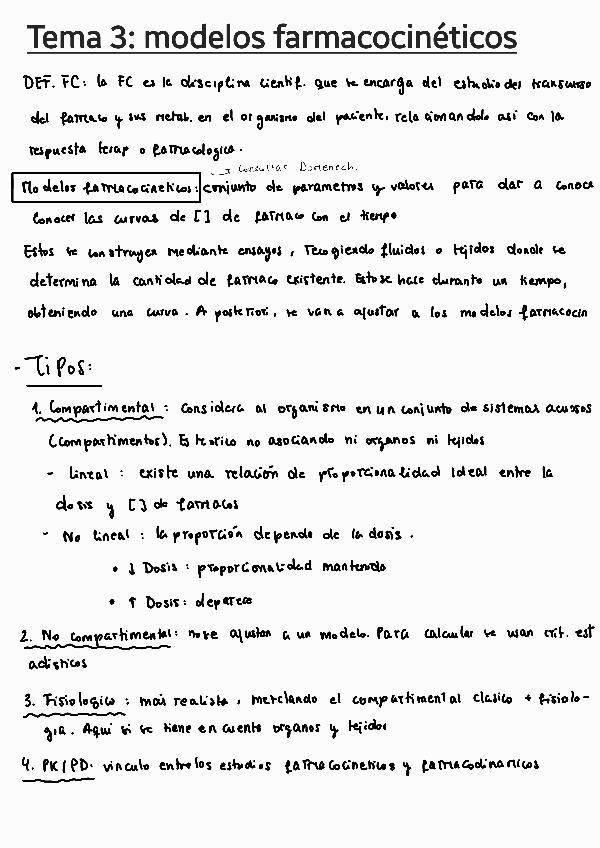 Tema 3: modelos farmacocinéticos
DEF. FC: la FC es la disciplina cientif. que se encarga del estudio del transcurso
del farmaco y sus metab. en el organismo del paciente, relacionandolo asi con la
respuesta terap o farmacologica.
→ Consultar Domenech.
Modelos farmacocineticos: conjunto de parametros y valores para dar a conoce
conocer las curvas de [] de farmaco con el tiempo
Estos se construyen mediante ensayos, recogiendo fluidos o tejidos donde se
determina la cantidad de farmaco existente. Esto se hace durante un tiempo,
obteniendo una curva. A posteriori, se van a ajustar a los modelos farmacocin
- Tipos:
1. Compartimental: considera al organismo en un conjunto de sistemas acuosos
(compartimentos). Es teorico no asociando ni organos ni tejidos
- lineal: existe una relación de proporcionalidad ideal entre la
dosis y [] de farmacos
- No lineal: la proporción depende de la dosis.
• ↓ Dosis: proporcionalidad mantenida
• ↑ Dosis:
2. No compartimental: no se ajustan a un modelo. Para calcular se usan crit. est
adisticos
3. Fisiologico: mas realista, mezclando el compartimental clasico + fisiolo-
gia. Aqui si se tiene en cuenta organos y tejidos
4. PK/PD: vinculo entre los estudios farmacocineticos y farmacodinamicos